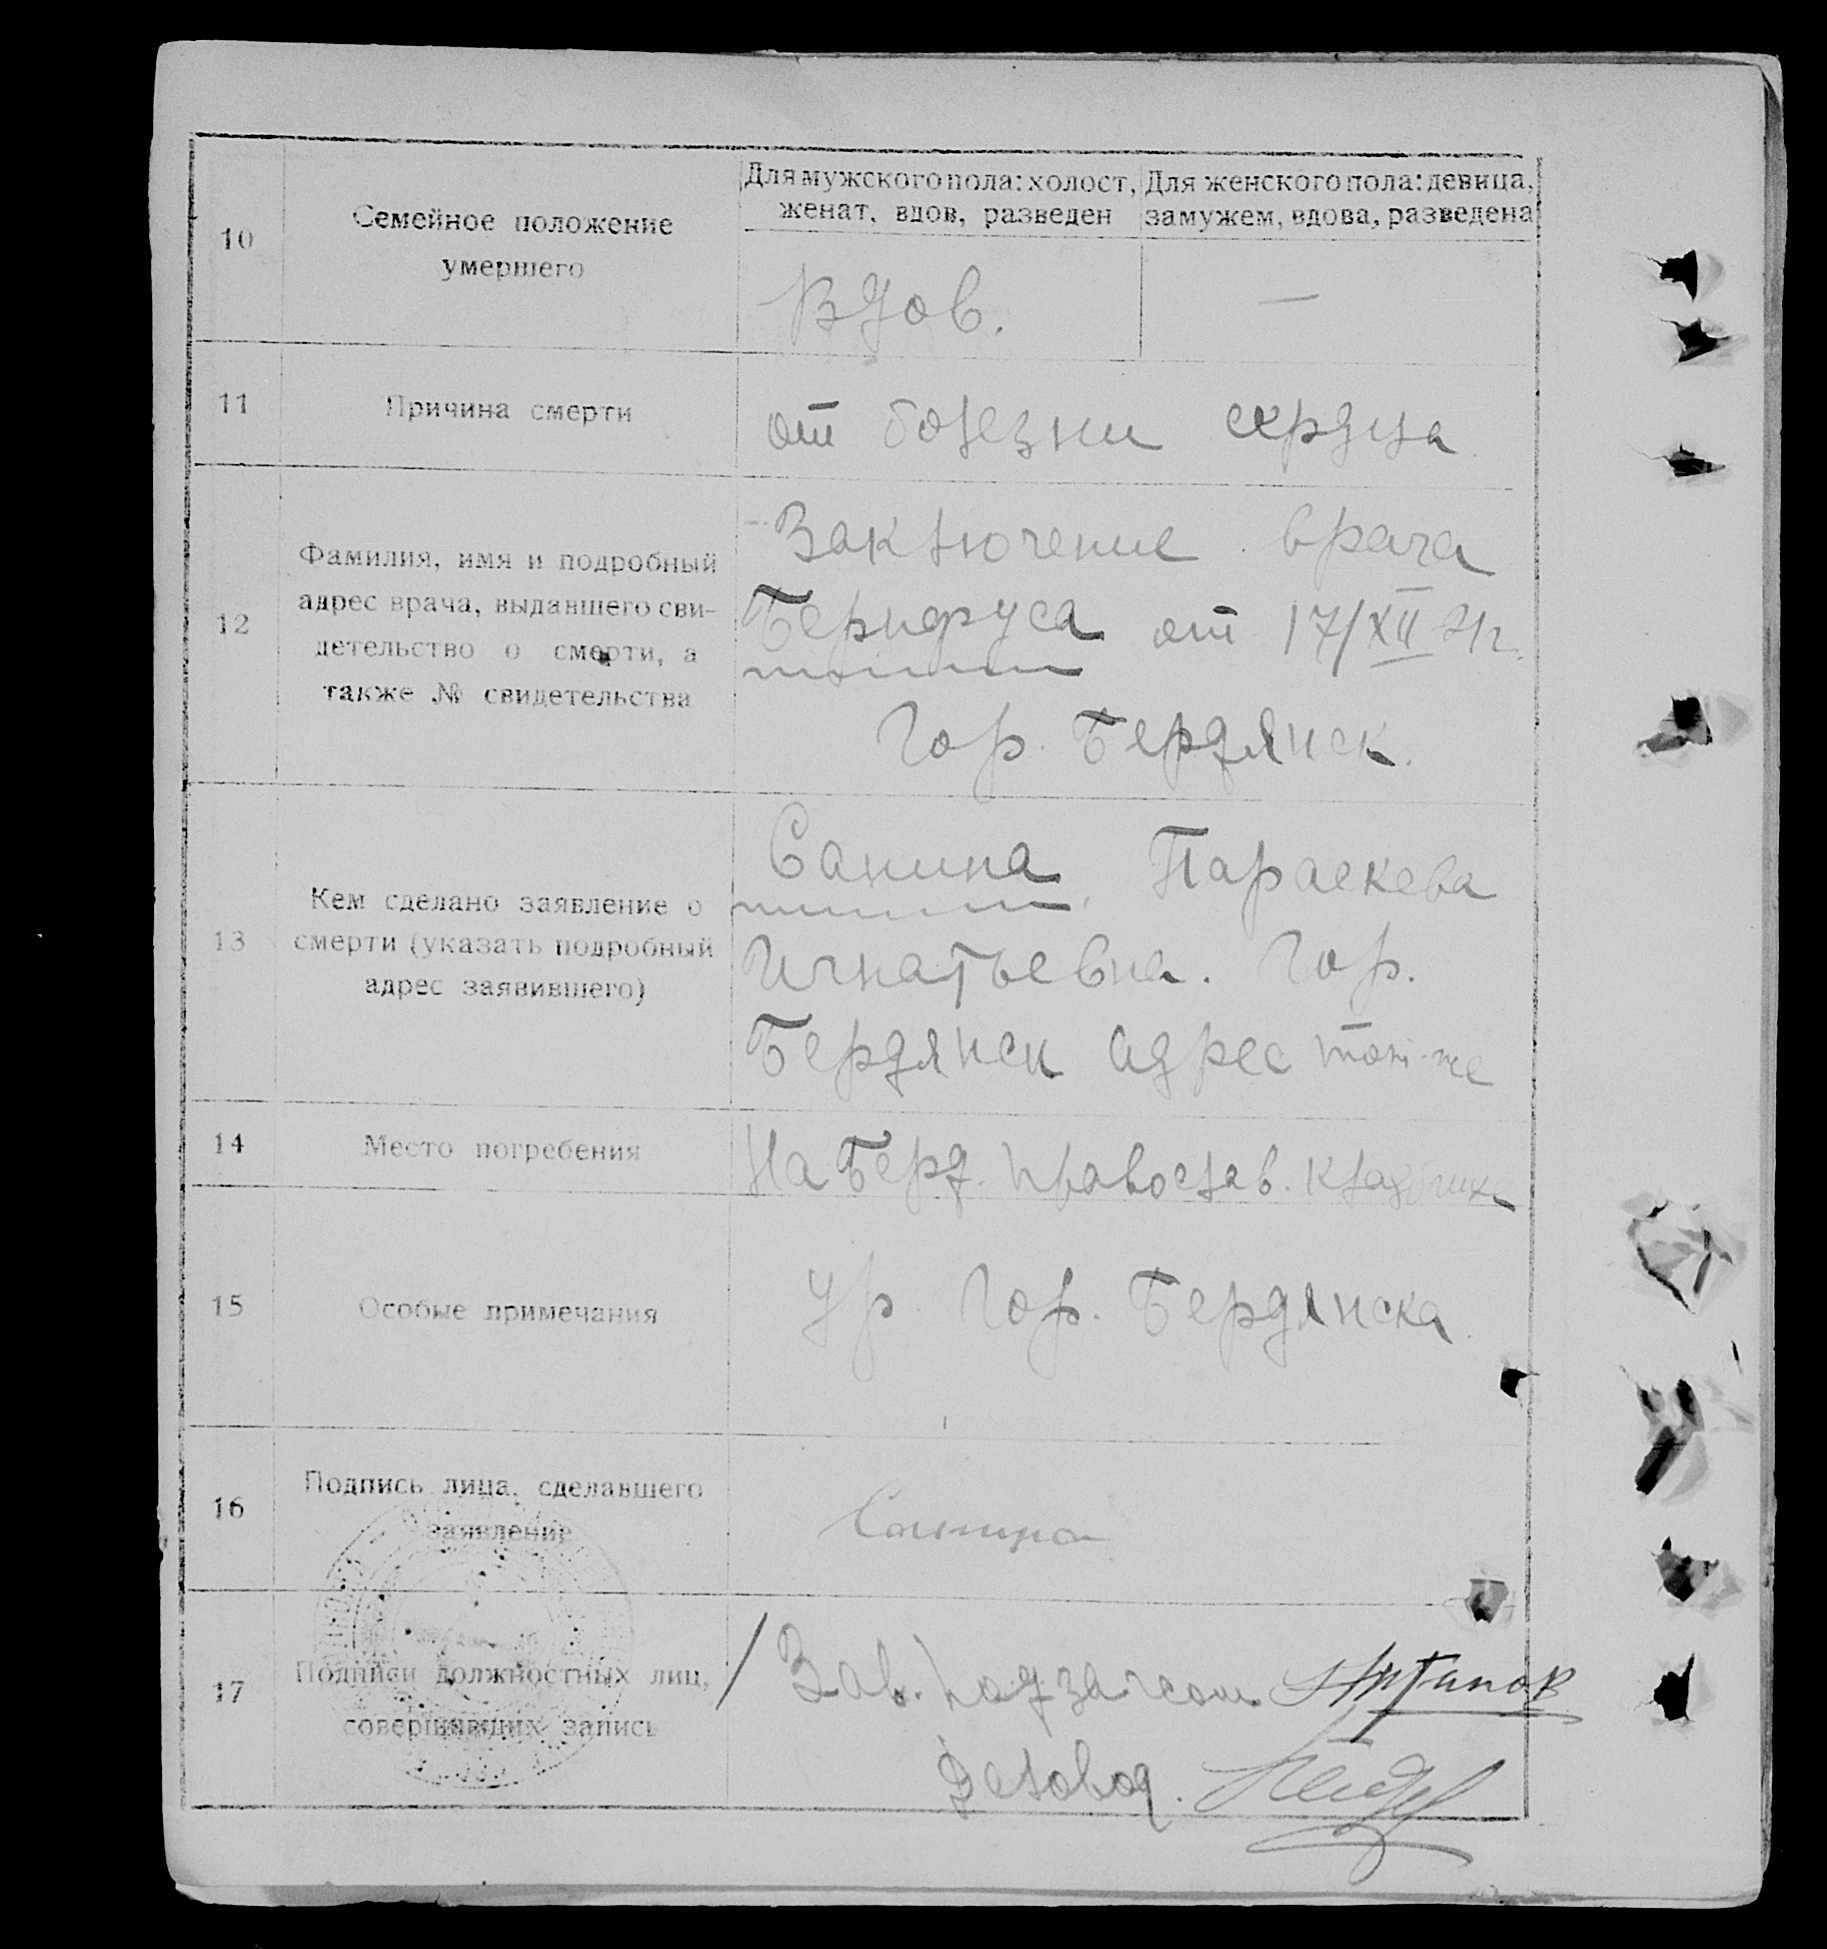 Для мужского пола: холост, женат, вдов, разведен
Для женского пола: девица, замужем, вдова, разведена
10
Семейное положение
умершего
Вдов.
—
11
Причина смерти
от болезни сердца
12
Фамилия, имя и подробный
адрес врача, выдавшего сви-
детельство о смерти, а
также № свидетельства
Заключение врача
от 17/XII 21г.
Гор. Бердянск.
13
Кем сделано заявление о
смерти (указать подробный
адрес заявившего)
Санина, Параскева
Игнатьевна. Гор.
Бердянск адрес тот-же
14
Место погребения
На Берд. православ. кладбище
15
Особые примечания
Ур. Гор. Бердянска
16
Подпись лица, сделавшего
заявление
Санина
17
Подписи должностных лиц,
совершивших запись
Зав. подзагсом
Деловод.